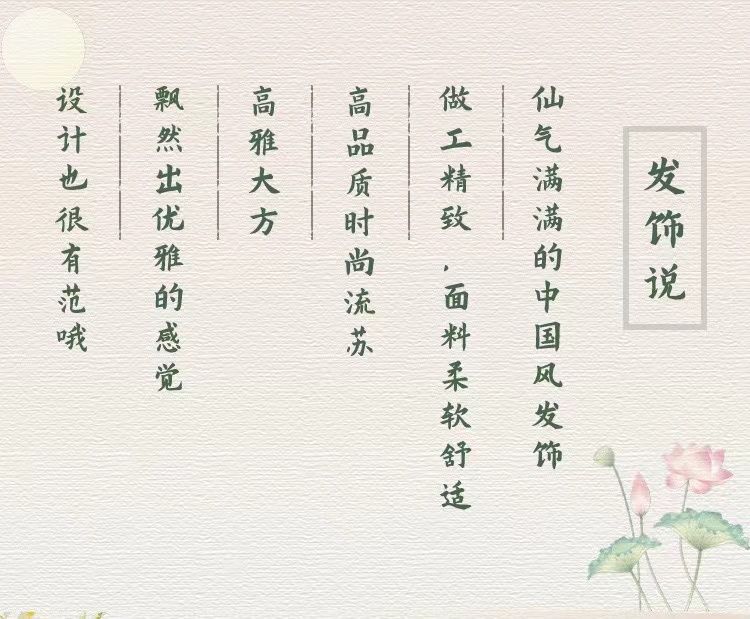 发饰说
仙气满满的中国风发饰
做工精致,面料柔软舒适
高品质时尚流苏
高雅大方
飘然出优雅的感觉
设计也很有范哦